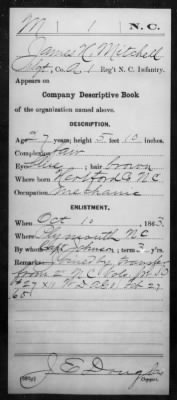 M | 1 | N.C.
James H. Mitchell
Sgt, Co. A, 1 Reg't N. C. Infantry.
Appears on
Company Descriptive Book
of the organization named above.
DESCRIPTION.
Age 27 years; height 5 feet 10 inches.
Complexion fair
Eyes ; hair brown
Where born N.C.
Occupation Mechanic
ENLISTMENT.
When Oct 10, 1863.
Where Plymouth N.C.
By whom Capt Johnson; term 3 y'rs.
Remarks: Joined by transfer
from 2 N.C. Vols. 
#27 Feb 27
65
J. E. Douglas
Copyist.